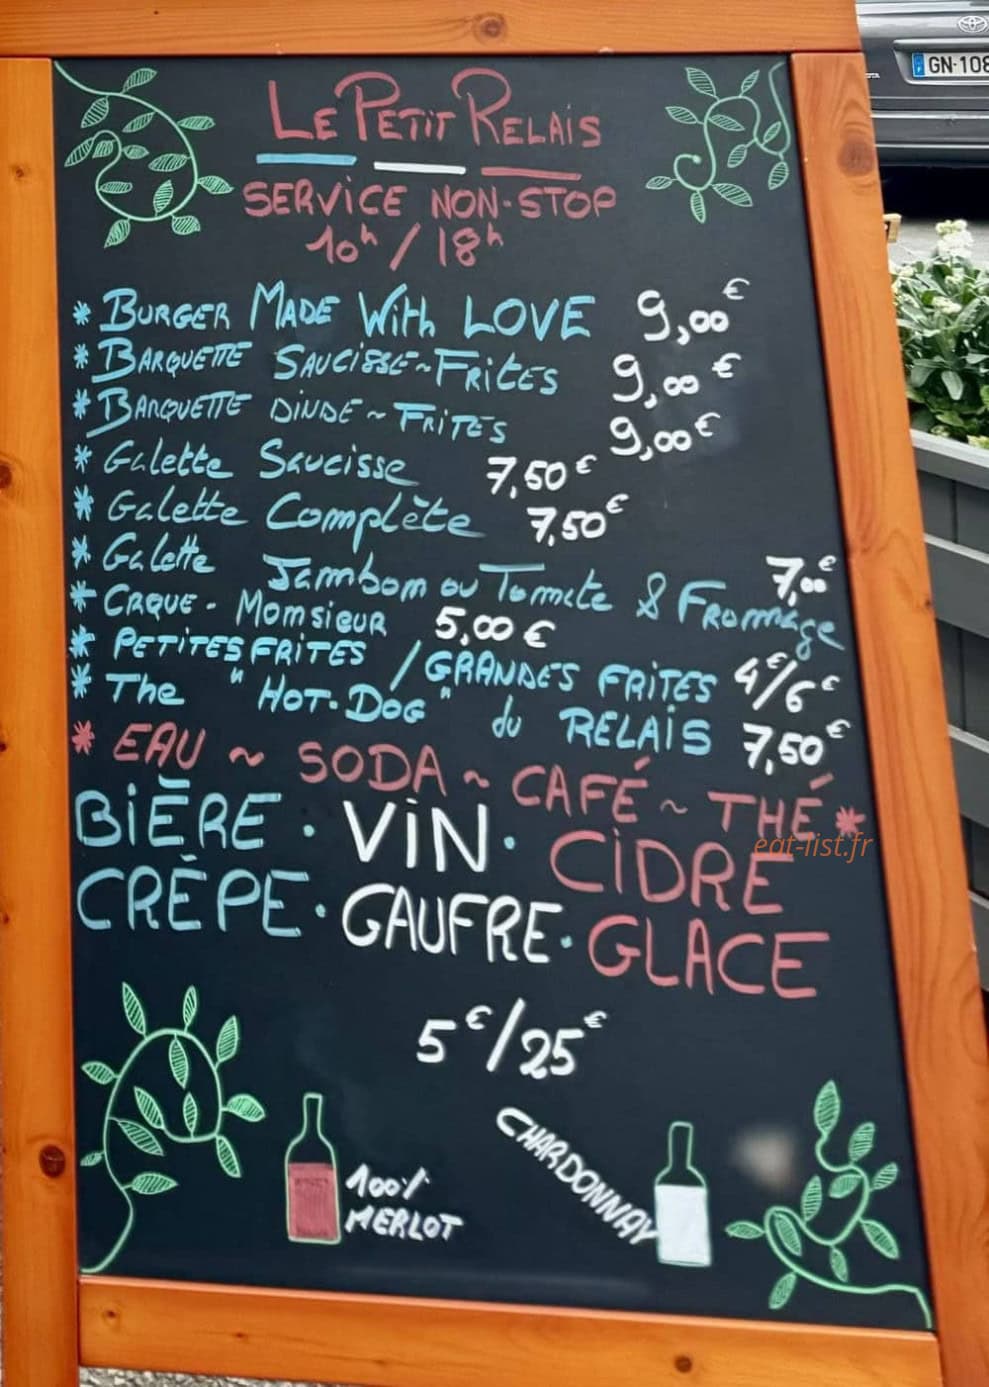 LE PETIT RELAIS
SERVICE NON-STOP
10h / 18h
* BURGER MADE With LOVE 9,00€
* BARQUETTE SAUCISSE~FRITES 9,00€
* BARQUETTE DINDE~FRITES 9,00€
* Galette Saucisse 7,50€
* Galette Complète 7,50€
* Galette Jambom ou Tomate & Fromage 7,00€
* CRQUE-Momsieur 5,00€
* PETITES FRITES / GRANDES FRITES 4€/6€
* The "HOT-DOG" du RELAIS 7,50€
* EAU ~ SODA ~ CAFÉ ~ THÉ *
BIÈRE · VIN · CIDRE
CRÊPE · GAUFRE · GLACE
5€/25€
100% MERLOT
CHARDONNAY
eat-list.fr
GN-108
TOYOTA